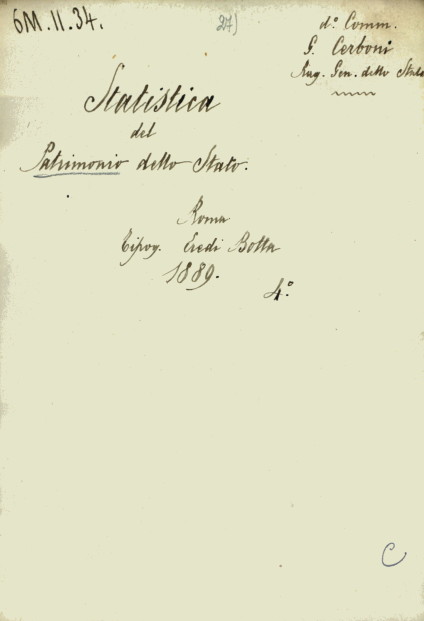 6M.II.34.
27)
d.º Comm.
G. Cerboni
Rag. Gen. dello Stato
Statistica
del
Patrimonio dello Stato.
Roma
Tipog. Eredi Botta
1889.
4.º
C